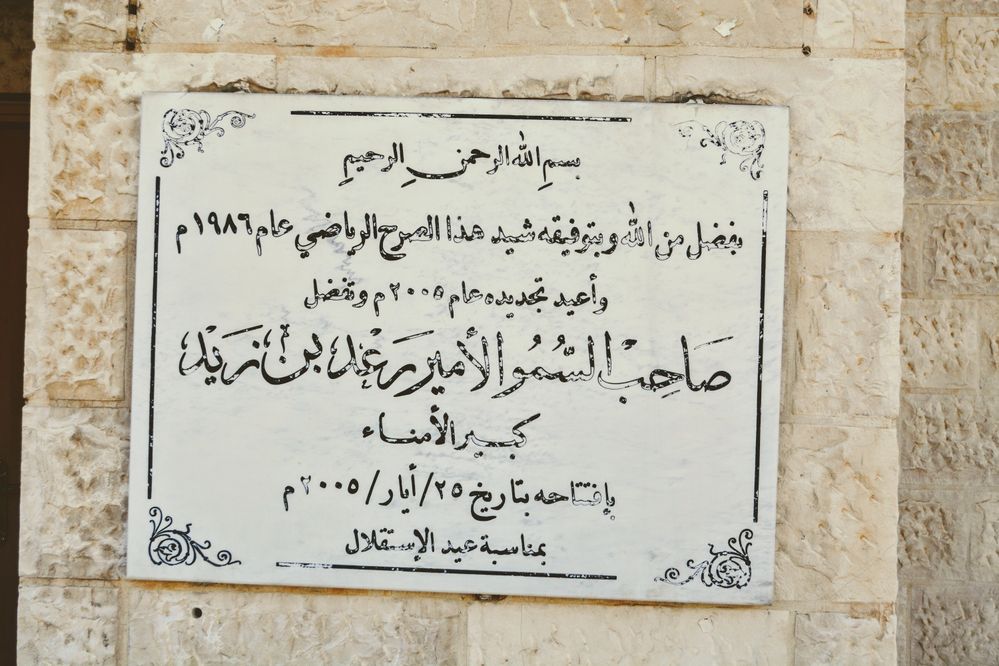 بسم الله الرحمن الرحيم
بفضل من الله وبتوفيقه شيد هذا الصرح الرياضي عام ١٩٨٦ م
وأعيد تجديده عام ٢٠٠٥ م وتفضل
صَاحِبْ السُّمُو الأمير رَعْد بن زَيْد
كبير الأمناء
بإفتتاحه بتاريخ ٢٥/أيار/٢٠٠٥ م
بمناسبة عيد الإستقلال